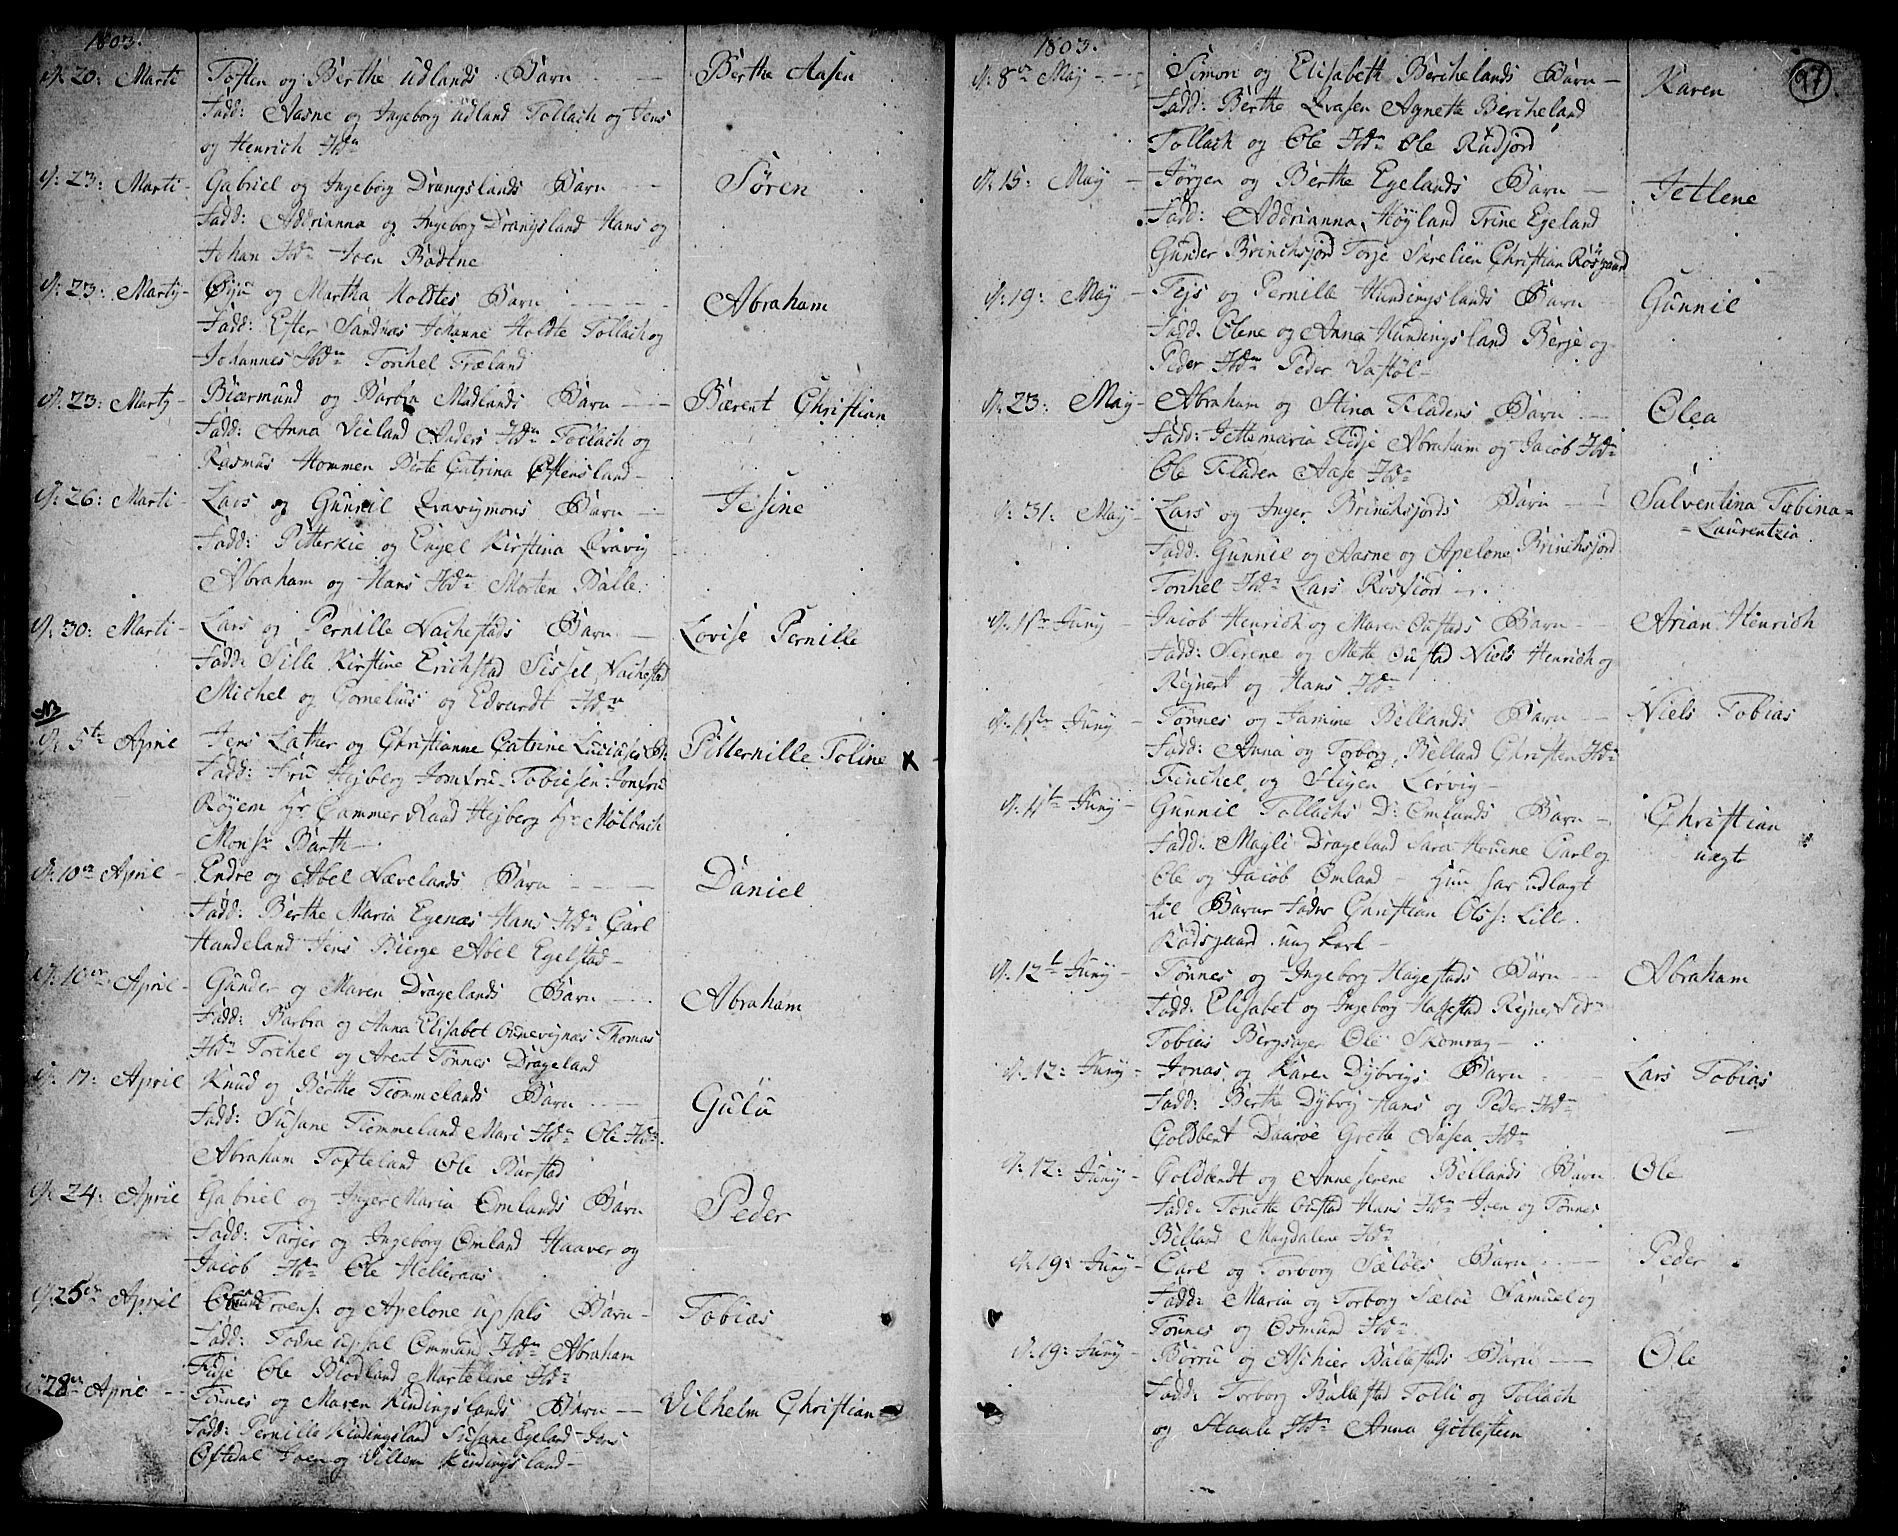 1803.
d: 20: Marti Tosten og Berthe Udlands Barn Berthe Aasen
Fadd: Aasne og Ingeborg Udland Tollach og Jens
og Henrich Ibdm
d: 23: Marti Gabriel og Ingeborg Drangslands Barn Søren
Fadd: Addrianna og Ingeborg Drangsland Hans og
Johan Ibdm Joen Bådene
d: 23: Marty Øyu og Martha Holdtes Barn Abraham
Fadd: Efter Sandnæs Johanne Holdte Tollach og
Johannes Ibdm Torchel Fræland
d: 23: Marty Biærmund og Barbra Madlands Barn Bærent Christian
Fadd: Anna Veeland Anders Ibdm Tollach og
Rasmus Hommen Berte Catrina Østensland
d: 26: Marti Lars og Gunnil Qvavigmons Barn Jesine
Fadd: Pitterkie og Engel Kirstina Qvavig
Abraham og Hans Ibdm Morten Balle
d: 30: Marti Lars og Pernille Nachestads Barn Lovise Pernille
Fadd: Sille Kirstine Erichstad Sissel Nachestad
Michel og Cornelius og Edvardt Ibdm
NB
d: 5te April Jens Lather og Christianne Catrine Pitternille Toline x
Fadd: Fru Hejberg Jomfru Tobiesen Jomfru
Røyem hr Cammer Raad Hejberg hr Molbach
Monsr Barth
d: 10de April Endre og Abel Nævelands Barn Daniel
Fadd: Berthe Maria Egenæs Hans Ibdm Carl
Handeland Jens Bierge Abel Egelstad
d: 10de April Gunder og Maren Dragelands Barn Abraham
Fadd: Barbra og Anna Elisabet Thomas
Ibdm Torchel og Arent Tønnes Drageland
d: 17: April Knud og Berthe Tiømmelands Barn Gulu
Fadd: Susane Tiømmeland Mari Ibdm Ole Ibdm
Abraham Tofteland Ole Barstad
d: 24: April Gabriel og Inger Maria Omlands Barn Peder
Fadd: Tarjer og Ingeborg Omland Haaver og
Jacob Ibdm Ole Helleraas
d: 25de April Troens: og Apelone Upsals Barn Tobias
Fadd: Todne Upsal Ommund Ibdm Abraham
Fidje Ole Blødland Martelene Ibdm
28de April Tønnes og Maren Kindingslands Barn Vilhelm Christian
Fadd: Pernille Kindingsland Susane Egeland Jens
Oftedal Joen og Villem Kindingsland
1803.
97
d: 8de May Simon og Elisabeth Berchelands Barn Karen
Fadd: Berthe Qvasen Agnette Bercheland
Tollach og Ole Ibdm Ole Rudjord
d: 15: May Jørgen og Berthe Egelands Barn Jetlene
Fadd: Addrianna Høyland Trine Egeland
Gunder Brinchsjord Torje Skrelien Christian Røsgaard
d: 19: May Tejs og Pernille Hundingslands Barn Gunnil
Fadd. Olene og Anna Hundingsland Berje og
Peder Ibdm Peder Vastøl
d: 23: May Abraham og Stina Fladens Barn Olea
Fadd: Jettemaria Fidje Abraham og Jacob Ibdm
Ole Fladen Aase Ibdm
d: 31: May Lars og Inger Brinchsjords Barn Salventina Tobina=
=Laurentzia
Fadd: Gunnil og Aasne og Apelone Brinchsjord
Torchel Ibdm Lars Rosfiord
d: 1ste Juny Jacob Henrich og Maren Oustads Barn Arian Henrich
Fadd: Serene og Mette Oustad Niels Henrich og
Rejnert og Hans Ibdm
d: 1ste Juny Tønnes og Jamine Bellands Barn Niels Tobias
Fadd: Anna og Torborg Belland Christen Ibdm
Finchel og Stigen Lervig
d: 11te Juny Gunnil Tollachs D: Omlands Barn Christian
uægte
Fadd: Magli Drageland Sara Houene Carl og
Ole og Jacob Omland hun har udlagt
til Barne Fader Christian Olss: Lille
Rødsgaard ung karl
d: 12te Juny Tønnes og Ingeborg Hagestads Barn Abraham
Fadd: Elisabet og Ingeborg Hagestad Rejnert Ibdm
Tobias Bergsager Ole Skomrag
d: 12: Juny Jonas og Karen Dybvigs Barn Lars Tobias
Fadd: Berthe Dybvig Hans og Peder Ibdm
Goldbent Daarøe Grette Aasen Ibdm
d: 12: Juny Goldbendt og Anne Serene Bellands Barn Ole
Fadd: Tonette Oustad Hans Ibdm Joen og Tønnes
Belland Magdalene Ibdm
d: 19: Juny Carl og Torborg Sæløes Barn Peder
Fadd: Maria og Torborg Sæløe Samuel og
Tønnes og Osmund Ibdm
d: 19: Juny Børru og Aschier Ballestads Barn Ole
Fadd: Torborg Ballestad Tolli og Tollach
og Staale Ibdm Anna Gollestein